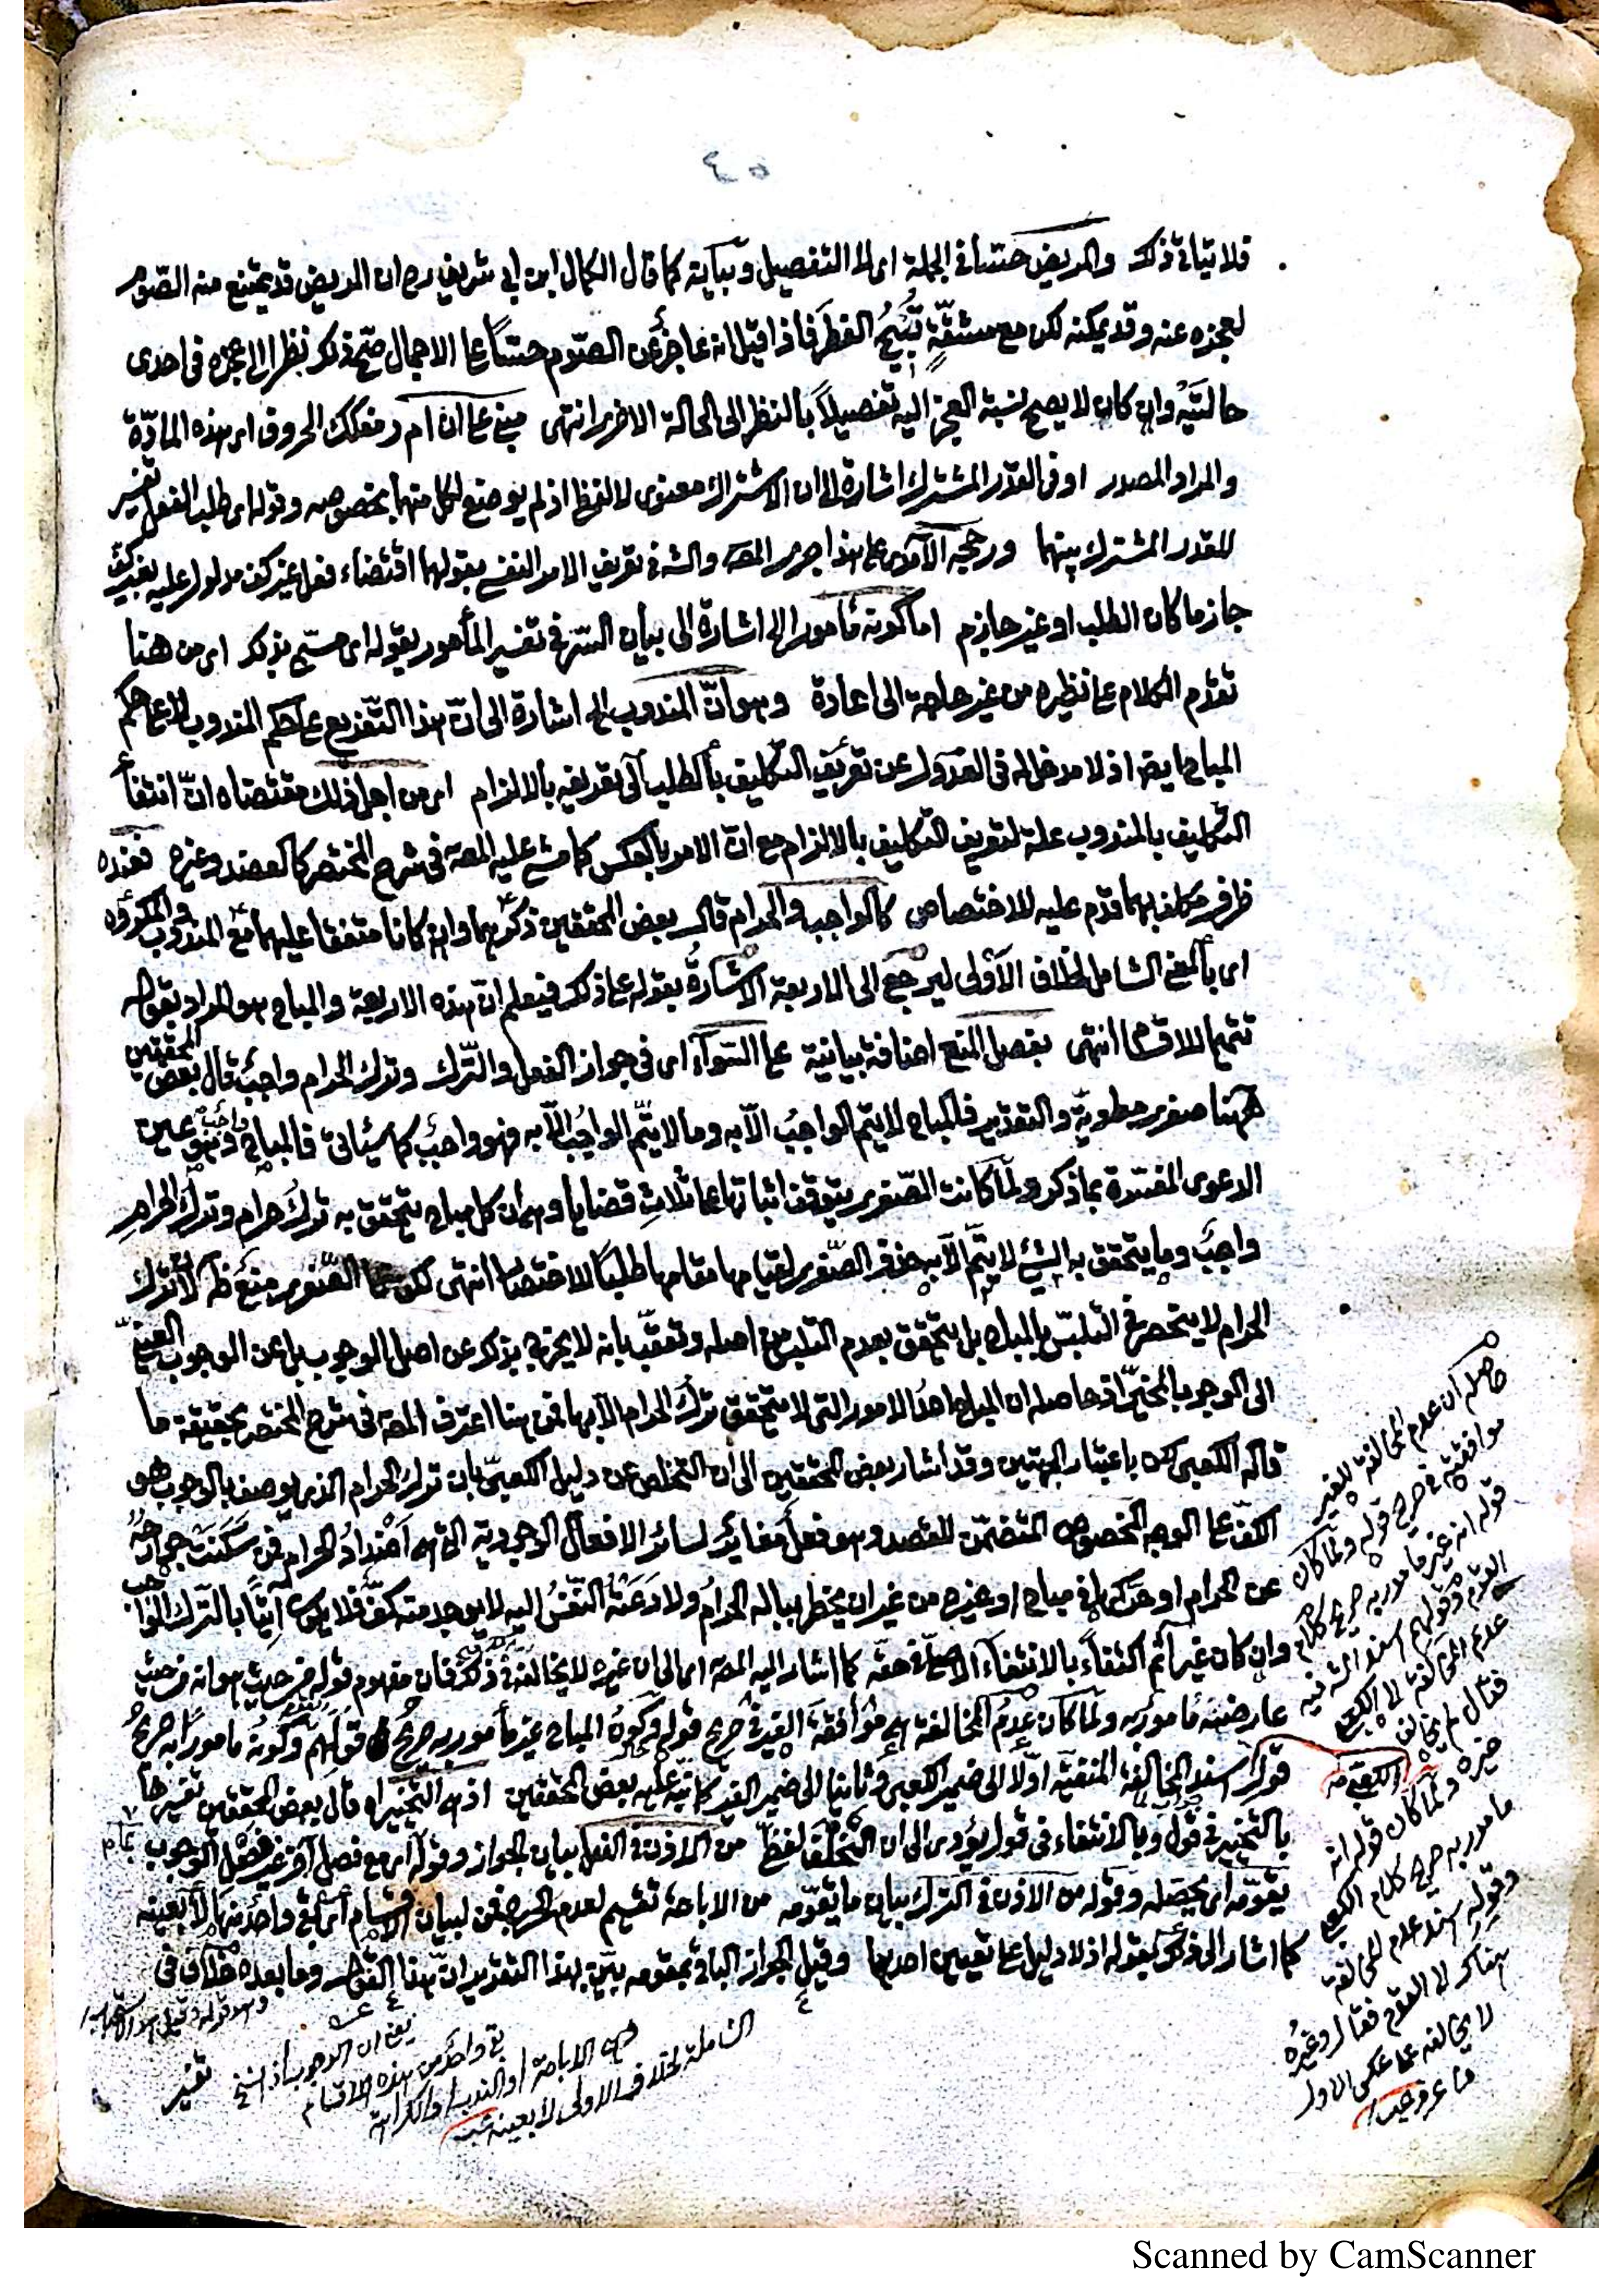 فلا يتاتى ذلك والمريض حسّا في الجملة اى لا التفصيل وبيانه كما قال الكمال ابن ابي شريف رح ان المريض قد يمتنع منه الصّوم
لعجزه عنه وقد يمكنه لكن مع مشقّةٍ تُبيحُ الفطر فاذا قيل انه عاجزٌ عن الصّوم حسّاً على الاجمال صحّ ذلك نظرا الى عجزه فى احدى
حالتَيْه وان كان لا يصح نسبة العجز اليه تفصيلاً بالنظر الى الحالة الاخرى انتهى مبنى على ان ام ر مفكك الحروف اى هذه المادّة
والمراد المصدر او فى القدر المشترك اشارة الى ان الاشتراك معنوى لا لفظى اذ لم يوضع لكل منهما بخصوصه وقوله اى طلب الفعل تفسير
للقدر المشترك بينهما ورجحه الآمدى على هذا جرى المصـ والشـ فى تعريف الامر النفسى بقولهما اقتضاء فعل غير كف مدلول عليه بغير كفّ
جازما كان الطلب او غير جازم اما كونه مأمورا الخ اشارة الى بيان السّر فى تفسير المأمور بقوله اى مسمّى بذكر اى من هنا
تقدّم الكلام على نظيره من غير حاجة الى اعادة وهو انّ المندوب الخ اشارة الى انّ هذا التّفريع على حكم المندوب لا على حكم
المباح ايضا اذ لا مدخل له فى العدول عن تعريف التّكليف بالطلب الى تعريفه بالالزام اى من اجل ذلك مقتضاه انّ انتفاء
التّكليف بالمندوب علة لتعريف التكليف بالالزام مع انّ الامر بالعكس كما مشى عليه المصـ فى شرح المختصر كالعضد وغيره فعنده
ظرف مكلف بهما قدّم عليه للاختصاص كالواجب والحرام قال بعض المحققين ذكرهما وان كانا متفقا عليهما مع المندوب والمكروه
اى بالمعنى الشامل لخلاف الاَوْلى ليرجع الى الاربعة الاشارةُ بقوله على ذلك فيعلم انّ هذه الاربعة والمباح هو المراد بقوله
تتميما للاقسام انتهى بفصل المنع اضافة بيانية على السّواء اى فى جواز الفعل والتّرك وترك الحرام واجبٌ قال بعض المحققين
ههنا صغرى مطويّة والتقدير فالمباح لا يتمّ الواجبُ الاّ به وما لا يتمّ الواجبُ الاّ به فهو واجبٌ كما سيأتى فالمباح واجب وهو عين
الدعوى المفسّرة بما ذكر ولمّا كانت الصّغرى يتوقف اثباتها على ثلاثِ قضايا وهى ان كل مباح يتحقق به تركُ حرام وتركُ الحرامِ
واجبٌ وما يتحقق به الشيئ لا يتمّ الاّ به حذف الصّغرى لقيامها مقامها طلبًا للاختصار انتهى لكن هذا الصّغرى منعٌ ظـ لانّ ترك
الحرام لا ينحصر فى التلبّس بالمباح بل يتحقق بعدم التلبس من اصله وتعقّب بانه لا يخرج بذكر عن اصل الوجوب بل عن الوجوب العينىّ
الى الوجوب المخيّر اذ حاصله ان المباح احدُ الامور التى لا يتحقق تركُ الحرام الاّ بها فمن هنا اعترف المصـ فى شرح المختصر بحقيقة ما
قاله الكعبى لكن باعتبار الجهتين وقد اشار بعض المحققين الى ان التخلص عن دليل الكعبىّ بان ترك الحرام الذى يوصف بالوجوب هو
الكفّ على الوجه المخصوص المتضمّن للقصد وهو فعلٌ مغايرٌ لسائر الافعال الوجودية التى هى اَضْدادُ الحرام فمن سَكَنَتْ جوارحُهُ
عن الحرام او حرّكها فى مباح او غيره من غير ان يخطر بباله الحرامُ ولا دَعَتْهُ النّفسُ اليه لا يوجد منه كفٌّ فلا يكون آتيًا بالتّرك الواجب
وان كان غير آثمٍ اكتفاءً بالانتفاء الاصلىّ فى حقّه كما اشار اليه المصـ اى الى ان غيره لا يخالفه فى ذلك فان مفهوم قوله من حيث هو انه من حيث
عارضيّته مأمور به ولمّا كان عدمُ المخالفة هى موافقةَ الغير فى صريح قوله وكون المباح غير مأمور به صريحٌ قولهم وكونُه مأمورًا به صريحُ
قوله اسند المخالفة المنفيّة اوّلا الى ضمير الكعبى وثانيا الى ضمير الغير كما نبّه عليه بعض المحققين اذ هى التخيير اه قال بعض المحققين تفسيرها
بالتخيير فى قولٍ وبالانتفاء فى قولٍ يؤدى الى ان الخُلْفَ لفظىّ من الاذن فى الفعل بيان للجواز وقوله اى مع فصل آخر غير فصل الوجوب
يقوّمه اى يحصّله وقوله من الاذن فى الترك بيان ما يقوّمه من الاباحة تقسيم لعدم الحرج فمن لبيان الاقسام اى بقى واحدٌ منها لا بعينه
كما اشار الى ذلك بقوله اذ لا دليل على تعيين احدها وقيل الجواز الباقى بمقومه بيّن بهذا التقدير انّ هذا القول وما بعده خلاف فى
حاصله ان عدم المخالفة للغير
موافقته فى صريح قوله ولمّا كان
قوله انه غير مأمور به صريح كلام
القوم وقولهم اسند الشـ فيه
عدم المخالفة الى الكعبى
فقال لم يخالف
الكعبى
غيره ولمّا كان قوله انه
مأمور به صريح كلام الكعبى
وقوله اسند عدم المخالفة
هناك الى القوم فقال وغيره
لا يخالفه على عكس الاول
يعنى ان الوجوب اذا نسخ
بقى واحدٌ من هذه الاقسام
وهى الاباحة او الندب او الكراهة
الشاملة لخلاف الاولى لا بعينه